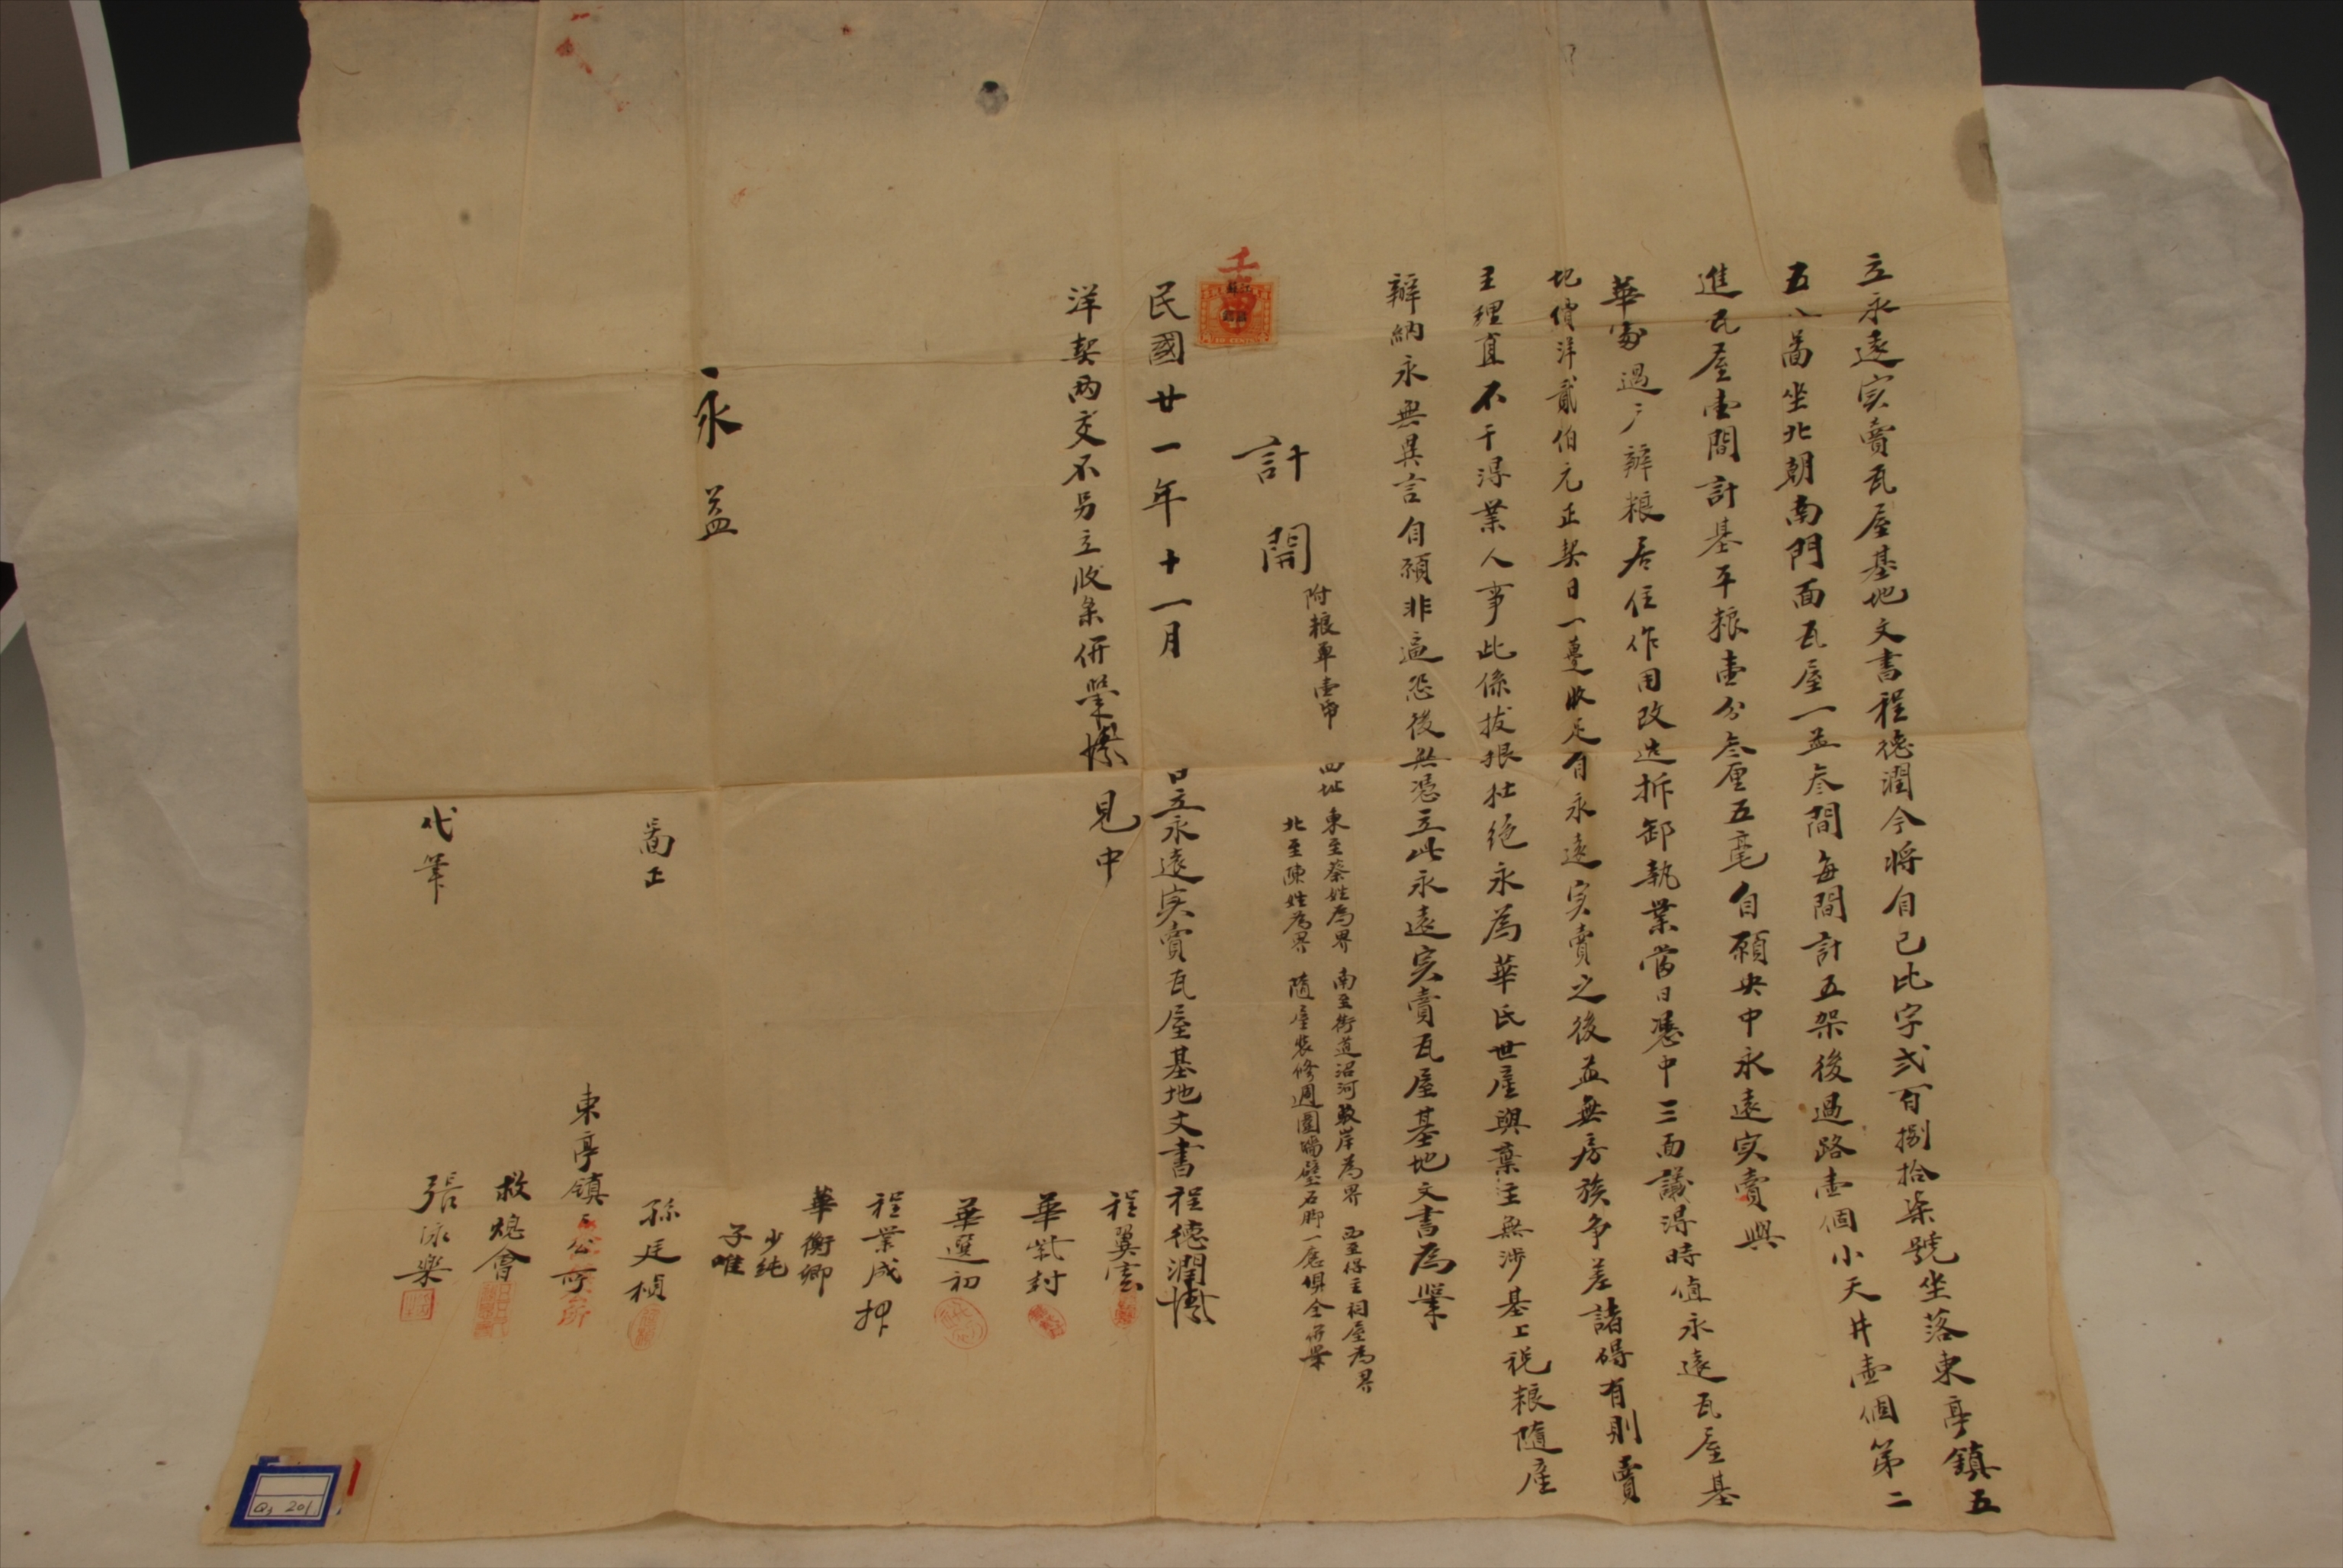 立永遠实賣瓦屋基地文書程德潤今將自己比字弍百捌拾柒號坐落東亭鎮五
五八啚坐北朝南門面瓦屋一並叁間每間計五架後過路壹個小天井壹個第二
進瓦屋壹間計基平粮壹分叁厘五毫自願央中永遠实賣與
華處過戶辦粮居住作用改造拆卸執業當日憑中三面議得時值永遠瓦屋基
地價洋貳伯元正契日一並收足自永遠实賣之後並無房族爭差諸碍有則賣
主理直不干得業人事此係拔根杜绝永為華氏世産與棄主無涉基上祱粮隨産
辦納永無異言自願非逼恐後無憑立此永遠实賣瓦屋基地文書為業
計開
附粮單壹帋 四址 東至蔡姓為界 南至街道沿河駁岸為界 西至得主祠屋為界
北至陳姓為界 隨屋裝修週圍墻壁石脚一應俱全併業
民國廿一年十一月 日立永遠实賣瓦屋基地文書程德潤
洋契两交不另立收条併業 見中 程翼雲
華紫封
華選初
程業成 押
華衡卿
少純
子唯
永益
啚正 孫廷楨
東亭鎮公所
救熄會
代筆 張泳樂
Q3 201